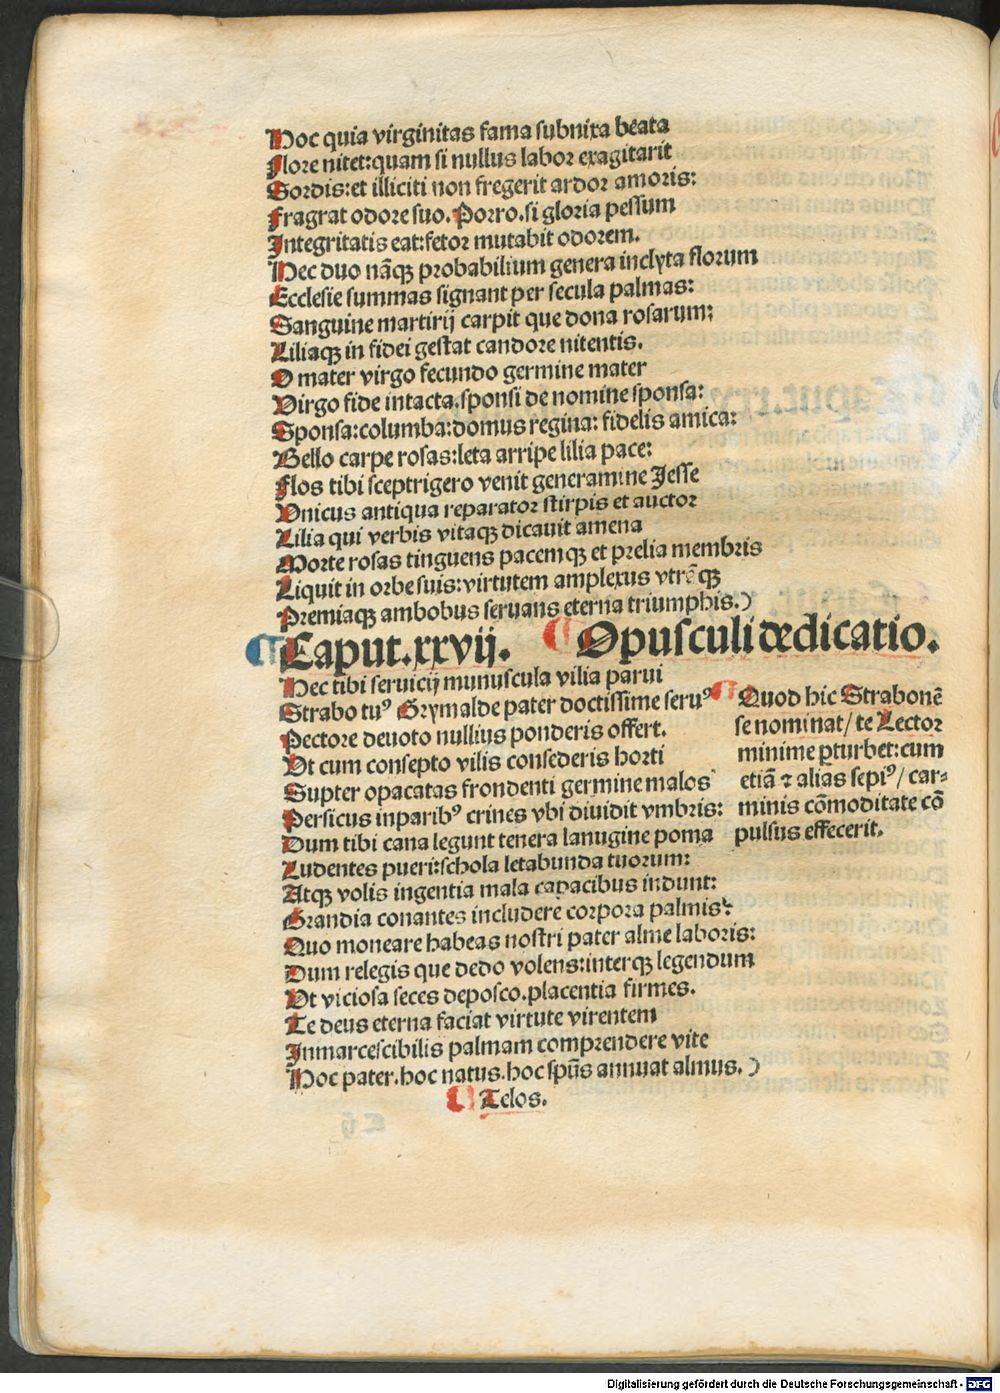 Hoc quia virginitas fama subnixa beata
Flore nitet:quam si nullus labor exagitarit
Sordis:et illiciti non fregerit ardor amoris:
Fragrat odore suo. Porro.si gloria pessum
Integritatis eat:fetor mutabit odorem.
Hec duo nāqꝫ probabilium genera inclyta florum
Ecclesie summas signant per secula palmas:
Sanguine martirij carpit que dona rosarum:
Liliaqꝫ in fidei gestat candore nitentis.
O mater virgo fecundo germine mater
Virgo fide intacta.sponsi de nomine sponsa:
Sponsa:columba:domus regina: fidelis amica:
Bello carpe rosas:leta arripe lilia pace:
Flos tibi sceptrigero venit generamine Jesse
Vnicus antiqua reparator stirpis et auctor
Lilia qui verbis vitaqꝫ dicauit amena
Morte rosas tinguens pacemqꝫ et prelia membris
Liquit in orbe suis:virtutem amplexus vtrēqꝫ
Premiaqꝫ ambobus seruans eterna triumphis.)
¶ Caput.xxvij. ¶ Opusculi dedicatio.
Hec tibi seruicij munuscula vilia parui
Strabo tuꝰ Grymalde pater doctissime seruꝰ
Pectore deuoto nullius ponderis offert.
Vt cum consepto vilis consederis horti
Supter opacatas frondenti germine malos
Persicus inparibꝰ crines vbi diuidit vmbris:
Dum tibi cana legunt tenera lanugine poma
Ludentes pueri:schola letabunda tuorum:
Atqꝫ volis ingentia mala capacibus indunt:
Grandia conantes includere corpora palmis:
Quo moneare habeas nostri pater alme laboris:
Dum relegis que dedo volens:interqꝫ legendum
Vt viciosa seces deposco.placentia firmes.
Te deus eterna faciat virtute virentem
Inmarcescibilis palmam comprendere vite
Hoc pater.hoc natus.hoc spūs annuat almus.)
¶ Telos.
¶ Quod hic Strabonē
se nominat/ te Lector
minime ꝑturbet:cum
etiā ⁊ alias sepiꝰ/ car⸗
minis cōmoditate cō
pulsus effecerit.
Digitalisierung gefördert durch die Deutsche Forschungsgemeinschaft - DFG